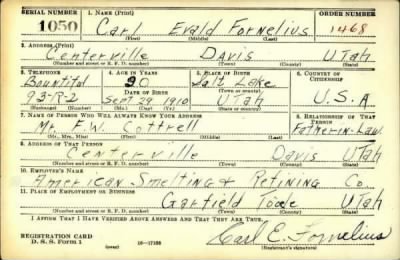 SERIAL NUMBER 1. NAME (Print) ORDER NUMBER
1050 Carl Evald Fornelius 1468
(First) (Middle) (Last)
2. ADDRESS (Print)
Centerville Davis Utah
(Number and street or R. F. D. number) (Town) (County) (State)
3. TELEPHONE 4. AGE IN YEARS 5. PLACE OF BIRTH 6. COUNTRY OF CITIZENSHIP
Bountiful Salt Lake
DATE OF BIRTH (Town or county)
93-R-2 Sept 29 1910 Utah U.S.A.
(Exchange) (Number) (Mo.) (Day) (Yr.) (State or country)
7. NAME OF PERSON WHO WILL ALWAYS KNOW YOUR ADDRESS 8. RELATIONSHIP OF THAT PERSON
Mr. F. W. Cottrell Father-in-Law
(Mr., Mrs., Miss) (First) (Middle) (Last)
9. ADDRESS OF THAT PERSON
Centerville Davis Utah
(Number and street or R. F. D. number) (Town) (County) (State)
10. EMPLOYER'S NAME
American Smelting & Refining Co.
11. PLACE OF EMPLOYMENT OR BUSINESS
Garfield Utah
(Number and street or R. F. D. number) (Town) (County) (State)
I AFFIRM THAT I HAVE VERIFIED ABOVE ANSWERS AND THAT THEY ARE TRUE.
REGISTRATION CARD Carl E. Fornelius
D. S. S. Form 1 (over) (Registrant's signature)